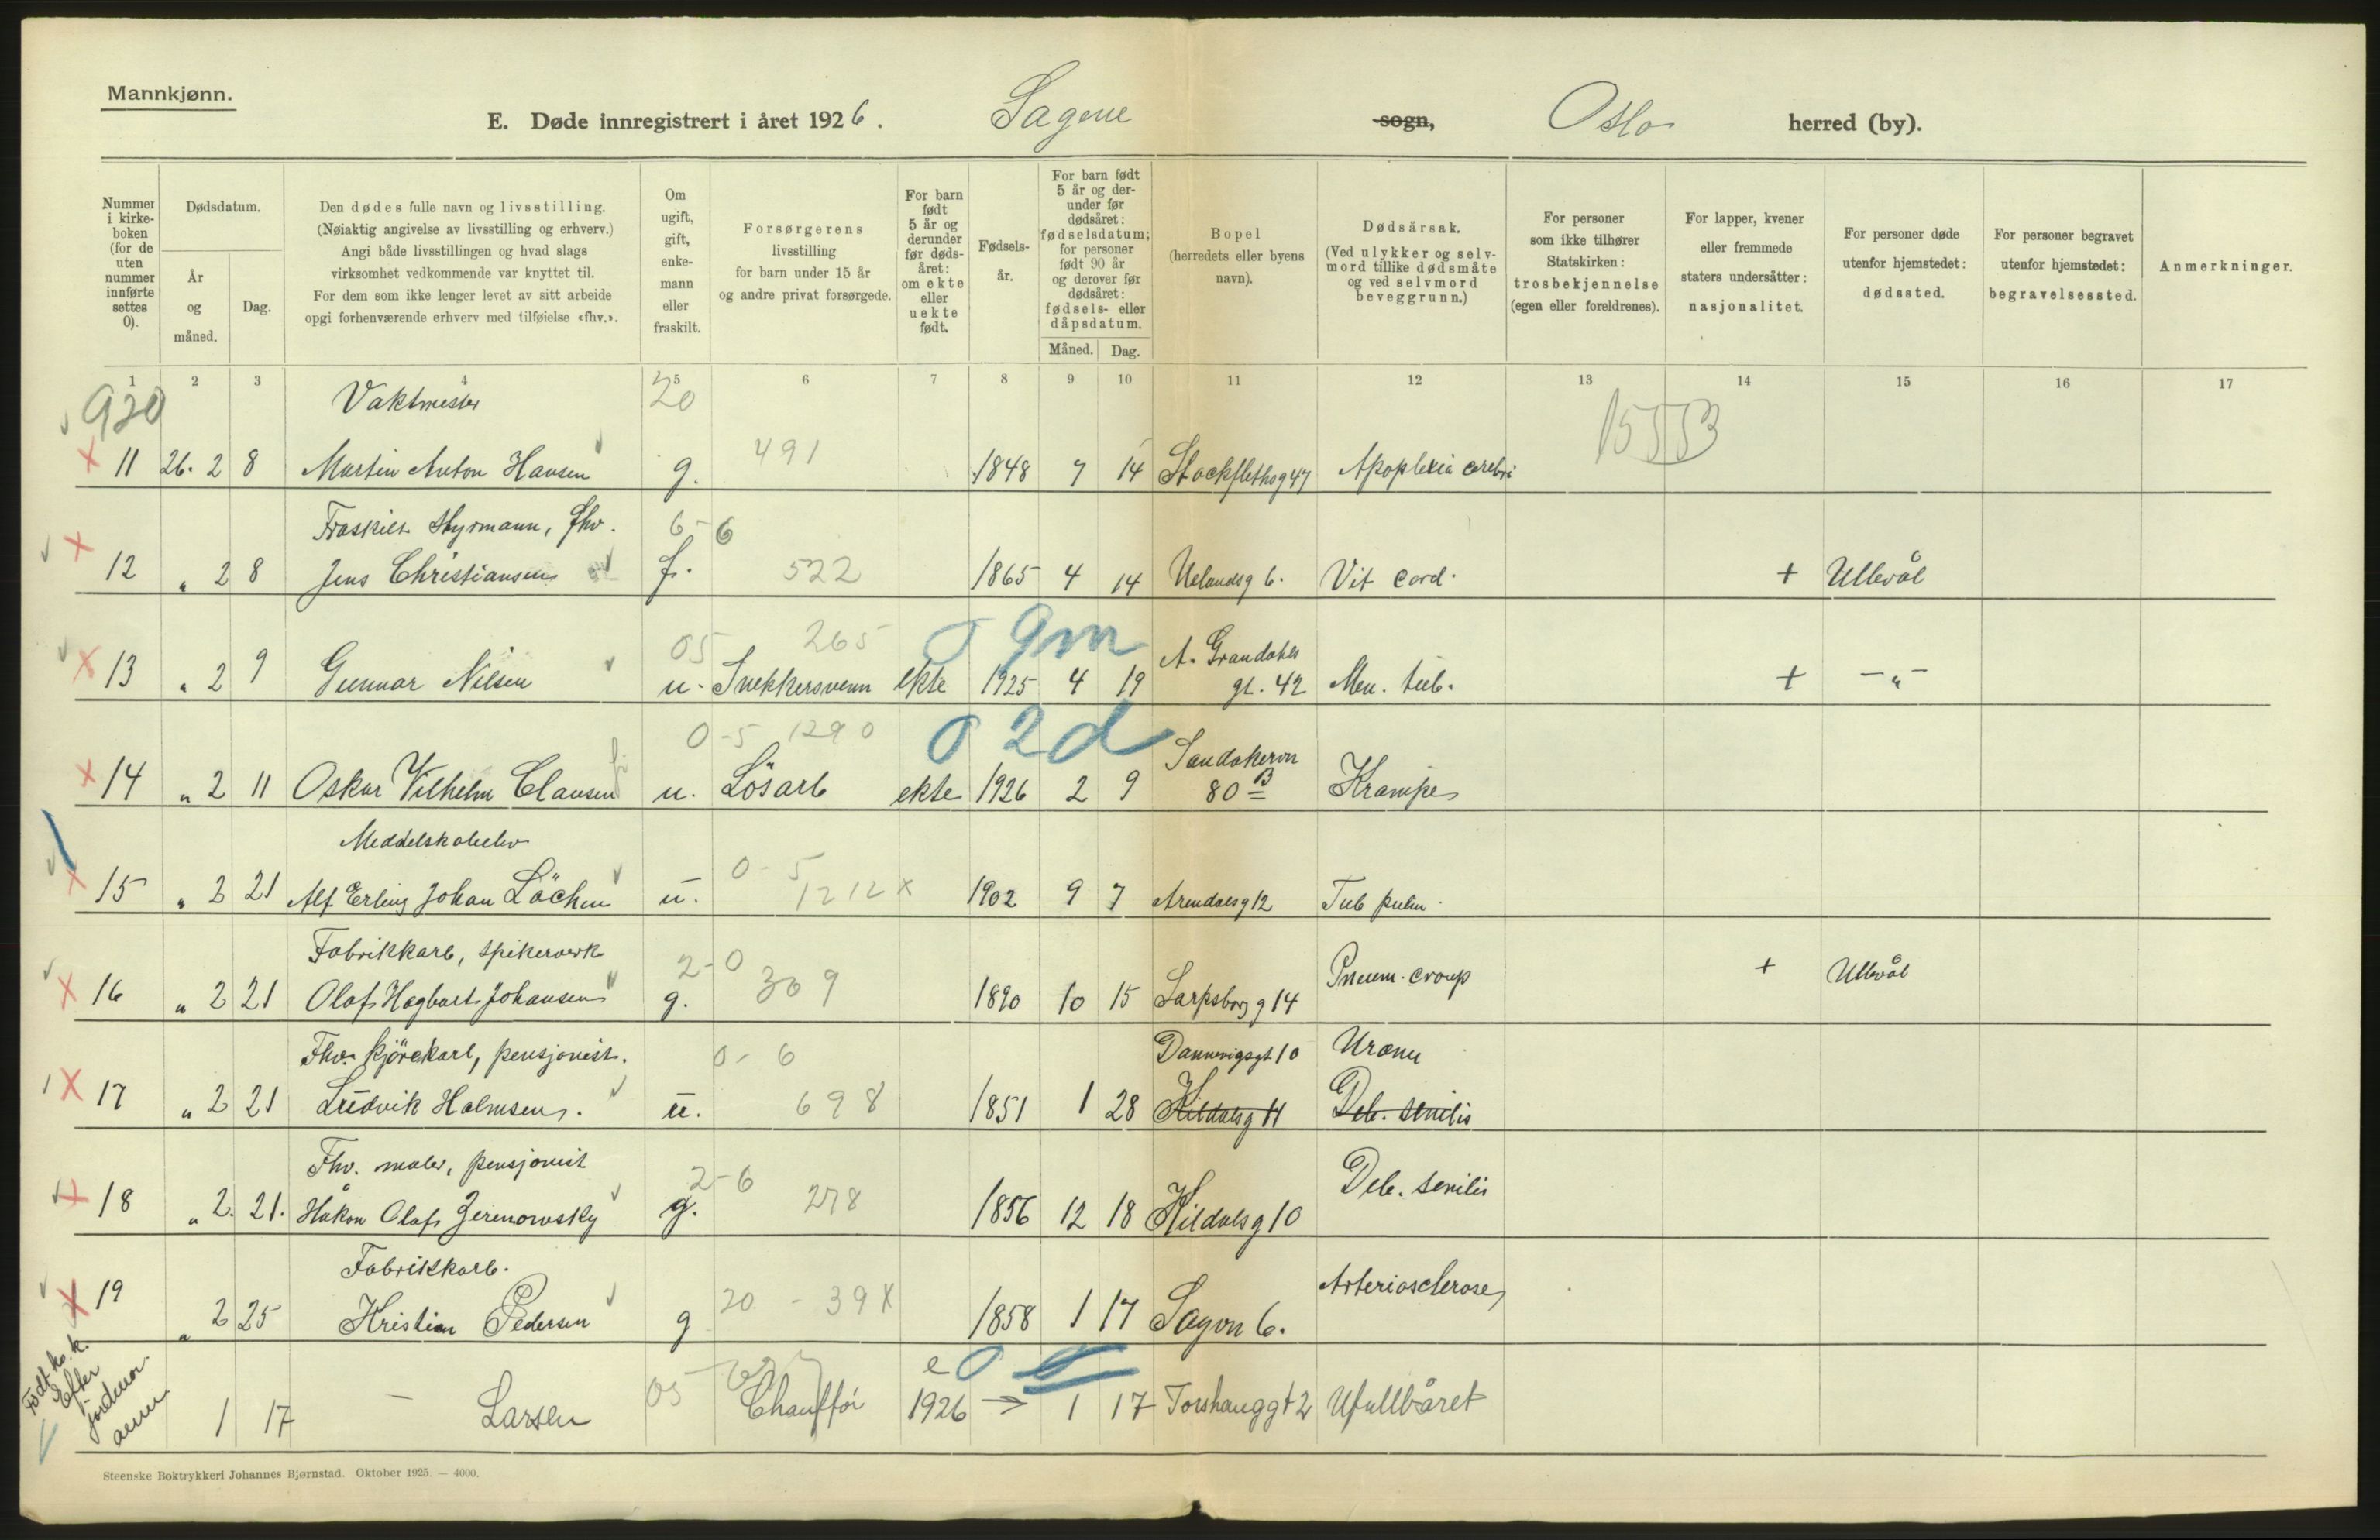 Mannkjønn.
E. Døde innregistrert i året 1926. Sagene sogn, Oslo herred (by).
Nummer i kirkeboken (for de uten nummer innførte settes 0).
Dødsdatum.
År og måned.
Dag.
Den dødes fulle navn og livsstilling.
(Nøiaktig angivelse av livsstilling og erhverv.)
Angi både livsstillingen og hvad slags
virksomhet vedkommende var knyttet til.
For dem som ikke lenger levet av sitt arbeide
opgi forhenværende erhverv med tilføielse «fhv.».
Om ugift, gift, enkemann eller fraskilt.
Forsørgerens
livsstilling
for barn under 15 år
og andre privat forsørgede.
For barn født 5 år og derunder før dødsåret: om ekte eller uekte født.
Fødselsår.
For barn født 5 år og derunder før dødsåret: fødselsdatum; for personer født 90 år og derover før dødsåret: fødsels- eller dåpsdatum.
Måned. Dag.
Bopel
(herredets eller byens
navn).
Dødsårsak.
(Ved ulykker og selvmord tillike dødsmåte og ved selvmord beveggrunn.)
For personer
som ikke tilhører
Statskirken:
trosbekjennelse
(egen eller foreldrenes).
For lapper, kvener
eller fremmede
staters undersåtter:
nasjonalitet.
For personer døde
utenfor hjemstedet:
dødssted.
For personer begravet
utenfor hjemstedet:
begravelsessted.
Anmerkninger.
1 2 3 4 5 6 7 8 9 10 11 12 13 14 15 16 17
920 Vaktmester 20 15553
11 26. 2 8 Martin Anton Hansen g. 491 1848 7 14 Stockflethsg 47 Apoplexia cerebri
Fraskilt Styrmann, fhv. 6-6
12 " 2 8 Jens Christiansen f. 522 1865 4 14 Uelandsg 6. Vit cord. + Ullevål
05 265 0 9m A. Grandahls
13 " 2 9 Gunnar Nilsen u. Snekkersvenn ekte 1925 4 19 gt. 42 Men. tub. + -"-
0-5 1290 0 2d Sandakervn
14 " 2 11 Oskar Vilhelm Clausen u. Lösarb ekte 1926 2 9 80 B Krampe
Middelskoleelev 0-5
15 " 2 21 Alf Erling Johan Löchen u. 1212 x 1902 9 7 Arendalsg 12 Tub pulm.
Fabrikkarb, spikerverk 2-0
16 " 2 21 Olaf Hagbart Johansen g. 309 1890 10 15 Sarpsborg g 14 Pneum. croup + Ullevål
Fhv. kjörekarl, pensjonist. 0-6 Dannevigsgt 10 Uræmi
17 " 2 21 Ludvik Halmsen. u. 698 1851 1 28 Kildalsg 11 Deb. senilis
Fhv. maler, pensjonist 2-6 Deb. senilis
18 " 2. 21. Håkon Olaf Zerenowsky g. 278 1856 12 18 Kildalsg 10
Fabrikkarb. Arteriosclerose
19 " 2 25 Kristian Pedersen g 20 - 39 X 1858 1 17 Sagvn 6.
Født k. k. Efter jordmor. anm
05 e 0
1 17 - Larsen Chauffør 1926 → 1 17 Torshauggt 2 Ufullbåret
Steenske Boktrykkeri Johannes Bjørnstad. Oktober 1925. — 4000.